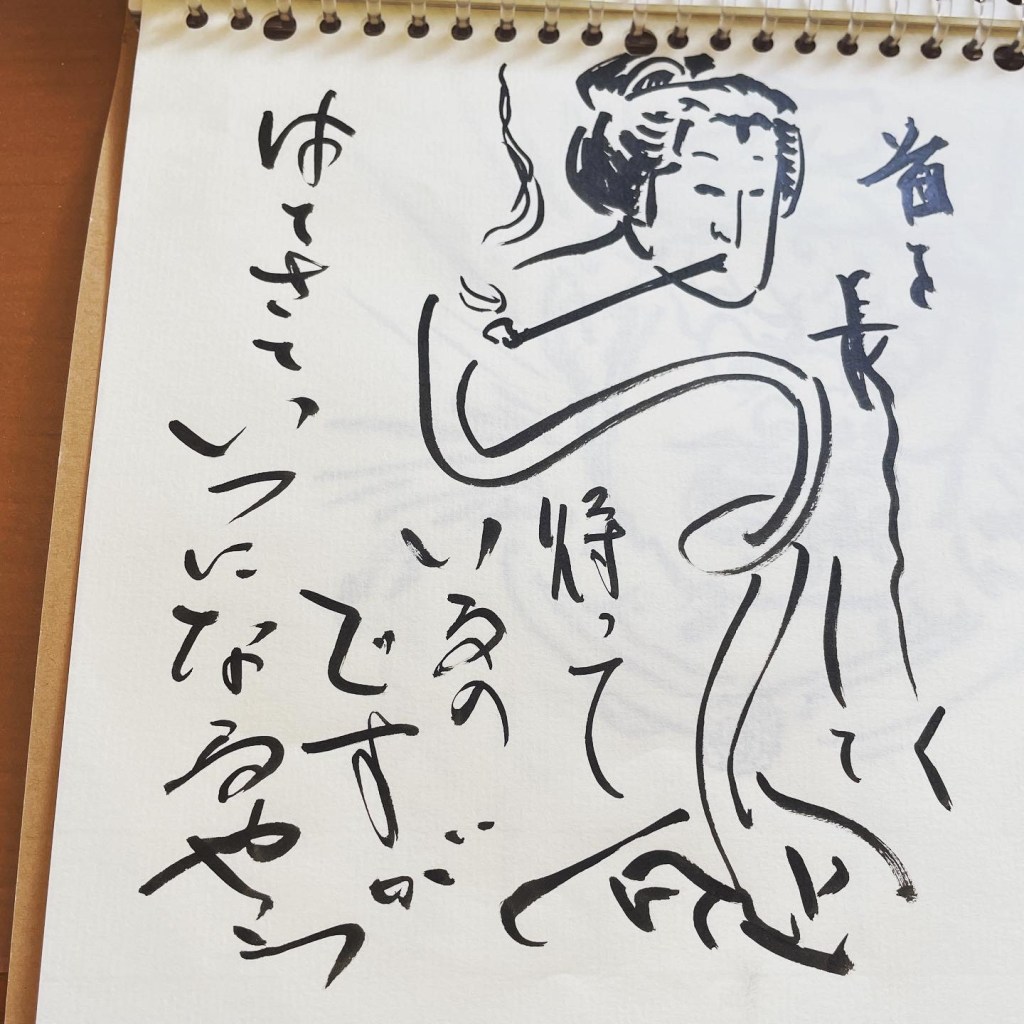 首を
長く
して
待って
いるの
ですが
はてさて、
いつになるやら